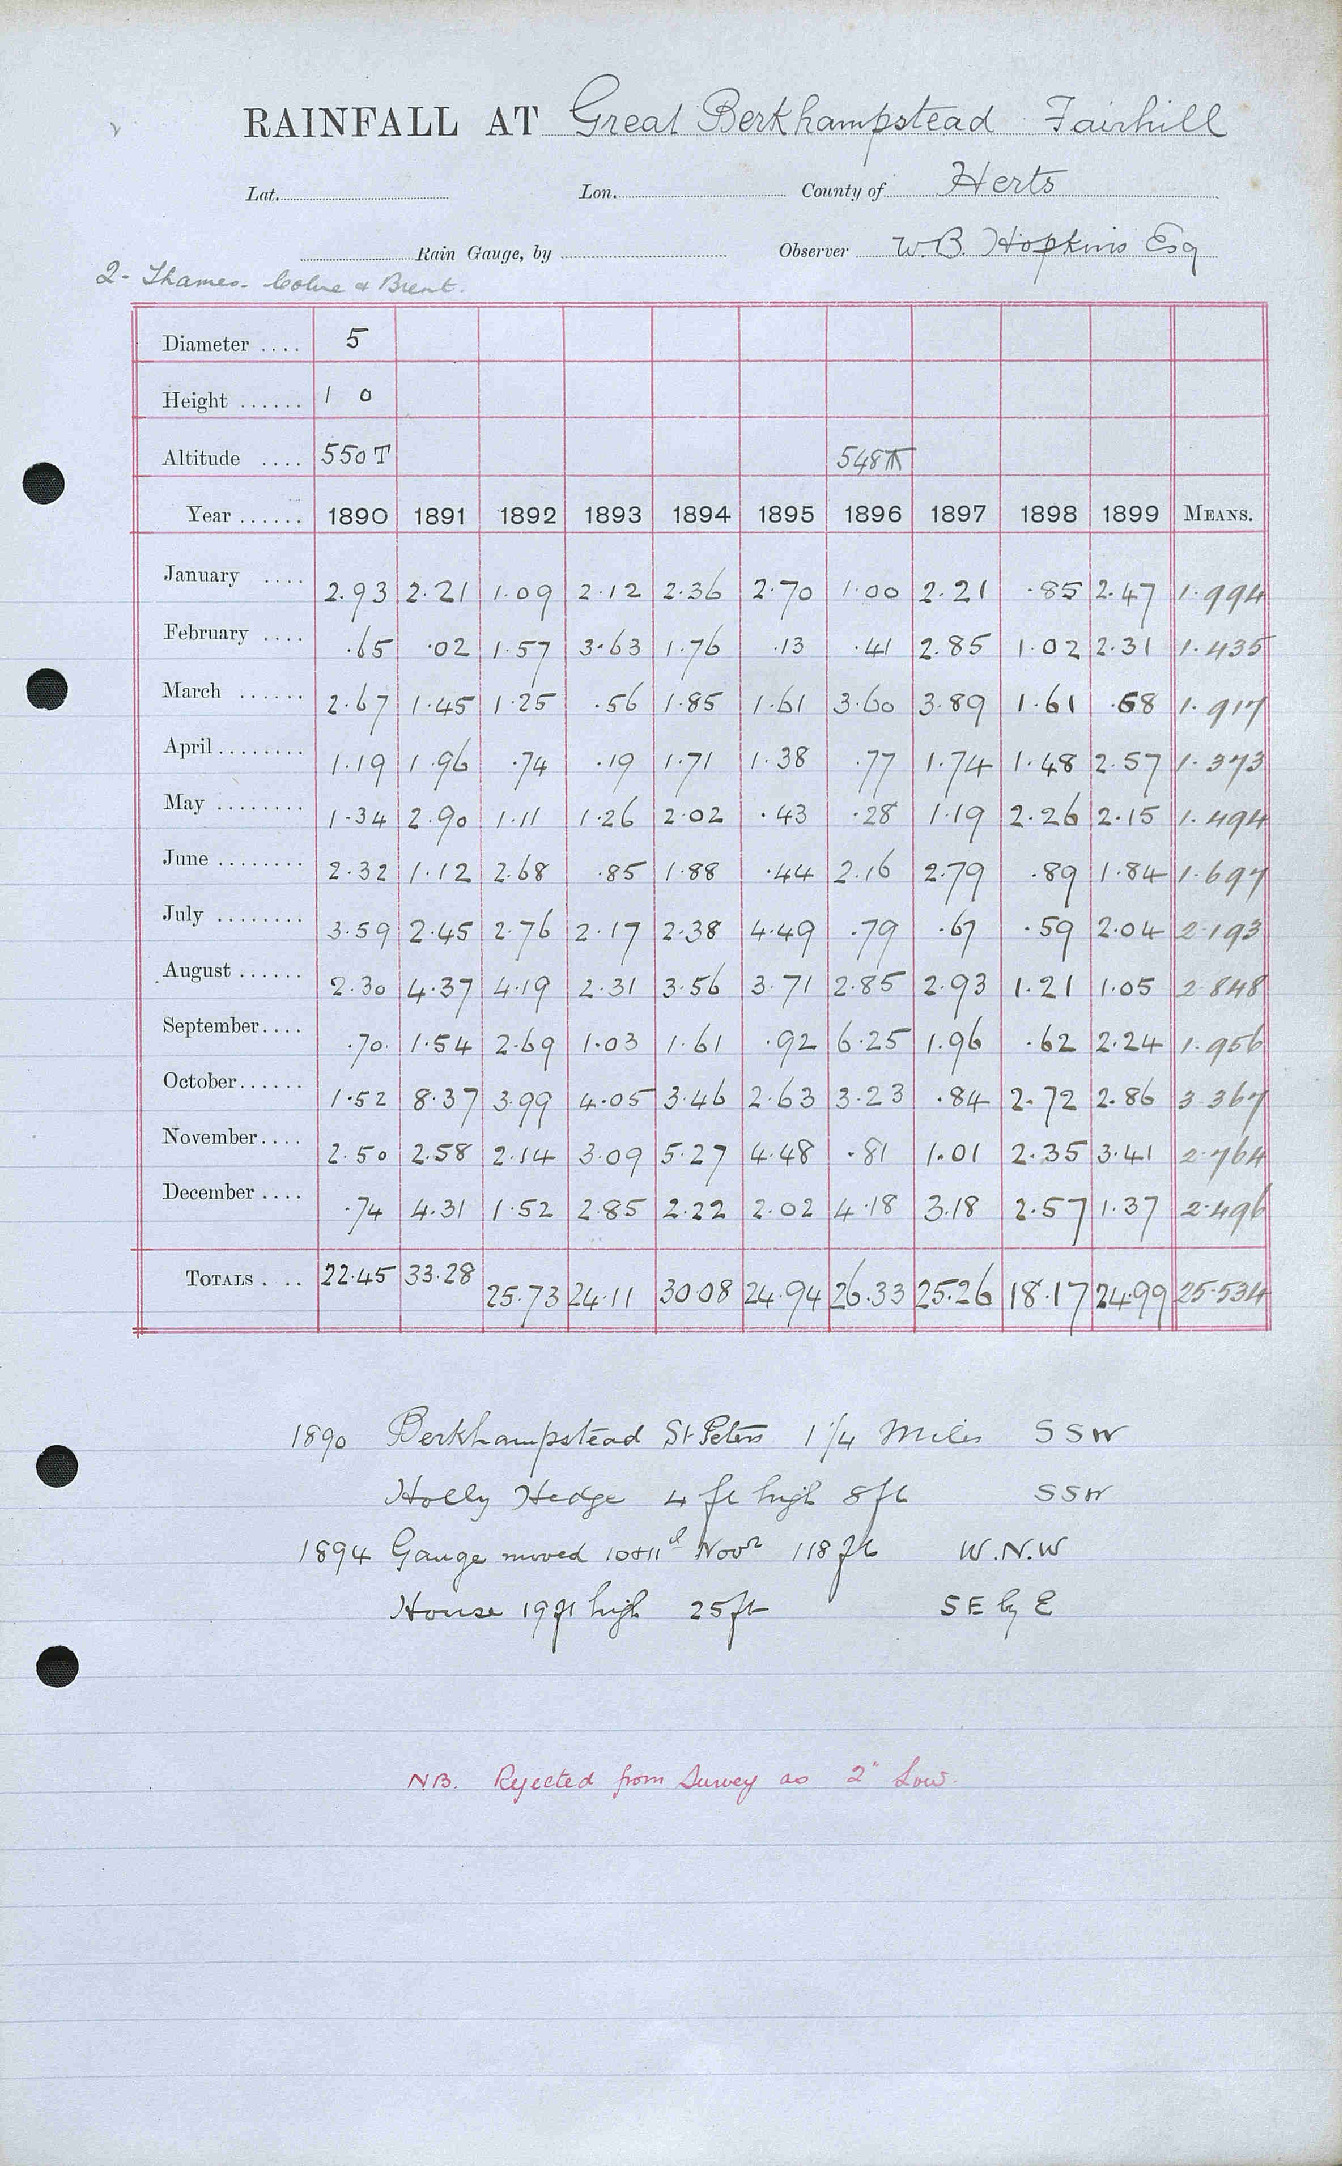 RAINFALL AT Great Berkhampstead Fairhill
Lat. Lon. County of Herts
Rain Gauge, by Observer W.B. Hopkins Esq
2 - Thames. Colne & Brent.
Diameter .... 5
Height ...... 1 0
Altitude .... 550 T 548
Year ...... 1890 1891 1892 1893 1894 1895 1896 1897 1898 1899 MEANS.
January .... 2.93 2.21 1.09 2.12 2.36 2.70 1.00 2.21 .85 2.47 1.994
February .... .65 .02 1.57 3.63 1.76 .13 .41 2.85 1.02 2.31 1.435
March ...... 2.67 1.45 1.25 .56 1.85 1.61 3.60 3.89 1.61 .68 1.917
April ........ 1.19 1.96 .74 .19 1.71 1.38 .77 1.74 1.48 2.57 1.373
May ........ 1.34 2.90 1.11 1.26 2.02 .43 .28 1.19 2.26 2.15 1.494
June ........ 2.32 1.12 2.68 .85 1.88 .44 2.16 2.79 .89 1.84 1.697
July ........ 3.59 2.45 2.76 2.17 2.38 4.49 .79 .67 .59 2.04 2.193
August ...... 2.30 4.37 4.19 2.31 3.56 3.71 2.85 2.93 1.21 1.05 2.848
September .... .70 1.54 2.69 1.03 1.61 .92 6.25 1.96 .62 2.24 1.956
October ...... 1.52 8.37 3.99 4.05 3.46 2.63 3.23 .84 2.72 2.86 3.367
November .... 2.50 2.58 2.14 3.09 5.27 4.48 .81 1.01 2.35 3.41 2.764
December .... .74 4.31 1.52 2.85 2.22 2.02 4.18 3.18 2.57 1.37 2.496
TOTALS .... 22.45 33.28 25.73 24.11 30.08 24.94 26.33 25.26 18.17 24.99 25.534
1890 Berkhampstead St Peters 1 1/4 Miles S S W
Holly Hedge 4 ft high 8 ft S S W
1894 Gauge moved Novr 118 ft W.N.W
House 19 ft high 25 ft S E by E
NB. Rejected from Survey as 2" Low.